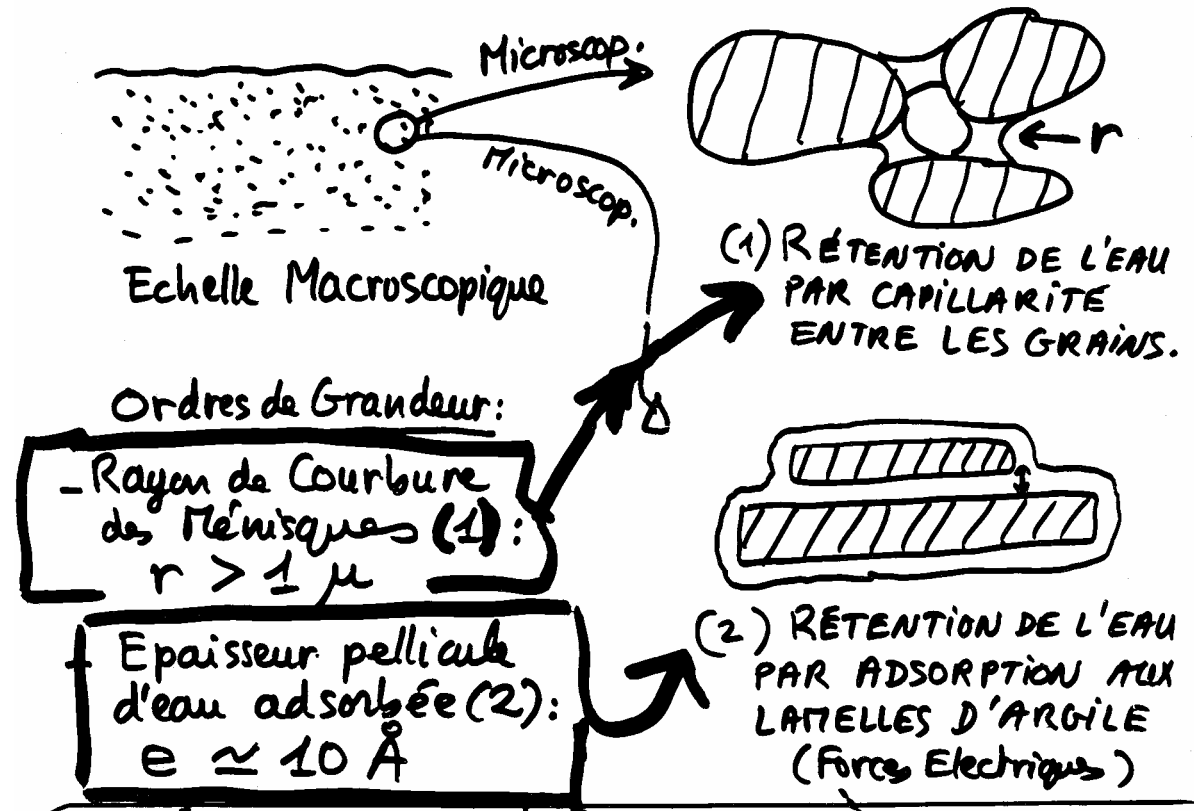 Microscop.
Microscop.
r
Echelle Macroscopique
(1) RÉTENTION DE L'EAU
PAR CAPILLARITÉ
ENTRE LES GRAINS.
Ordres de Grandeur:
- Rayon de Courbure
des Ménisques (1):
r > 1 μ
- Epaisseur pellicule
d'eau adsorbée (2):
e ≃ 10 Å
(2) RÉTENTION DE L'EAU
PAR ADSORPTION AUX
LAMELLES D'ARGILE
(Forces Electriques)